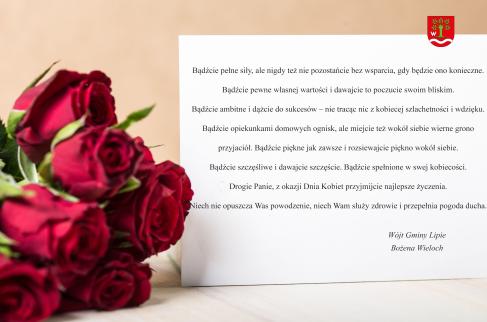 W
Bądźcie pełne siły, ale nigdy też nie pozostańcie bez wsparcia, gdy będzie ono konieczne.
Bądźcie pewne własnej wartości i dawajcie to poczucie swoim bliskim.
Bądźcie ambitne i dążcie do sukcesów – nie tracąc nic z kobiecej szlachetności i wdzięku.
Bądźcie opiekunkami domowych ognisk, ale miejcie też wokół siebie wierne grono
przyjaciół. Bądźcie piękne jak zawsze i rozsiewajcie piękno wokół siebie.
Bądźcie szczęśliwe i dawajcie szczęście. Bądźcie spełnione w swej kobiecości.
Drogie Panie, z okazji Dnia Kobiet przyjmijcie najlepsze życzenia.
Niech nie opuszcza Was powodzenie, niech Wam służy zdrowie i przepełnia pogoda ducha.
Wójt Gminy Lipie
Bożena Wieloch